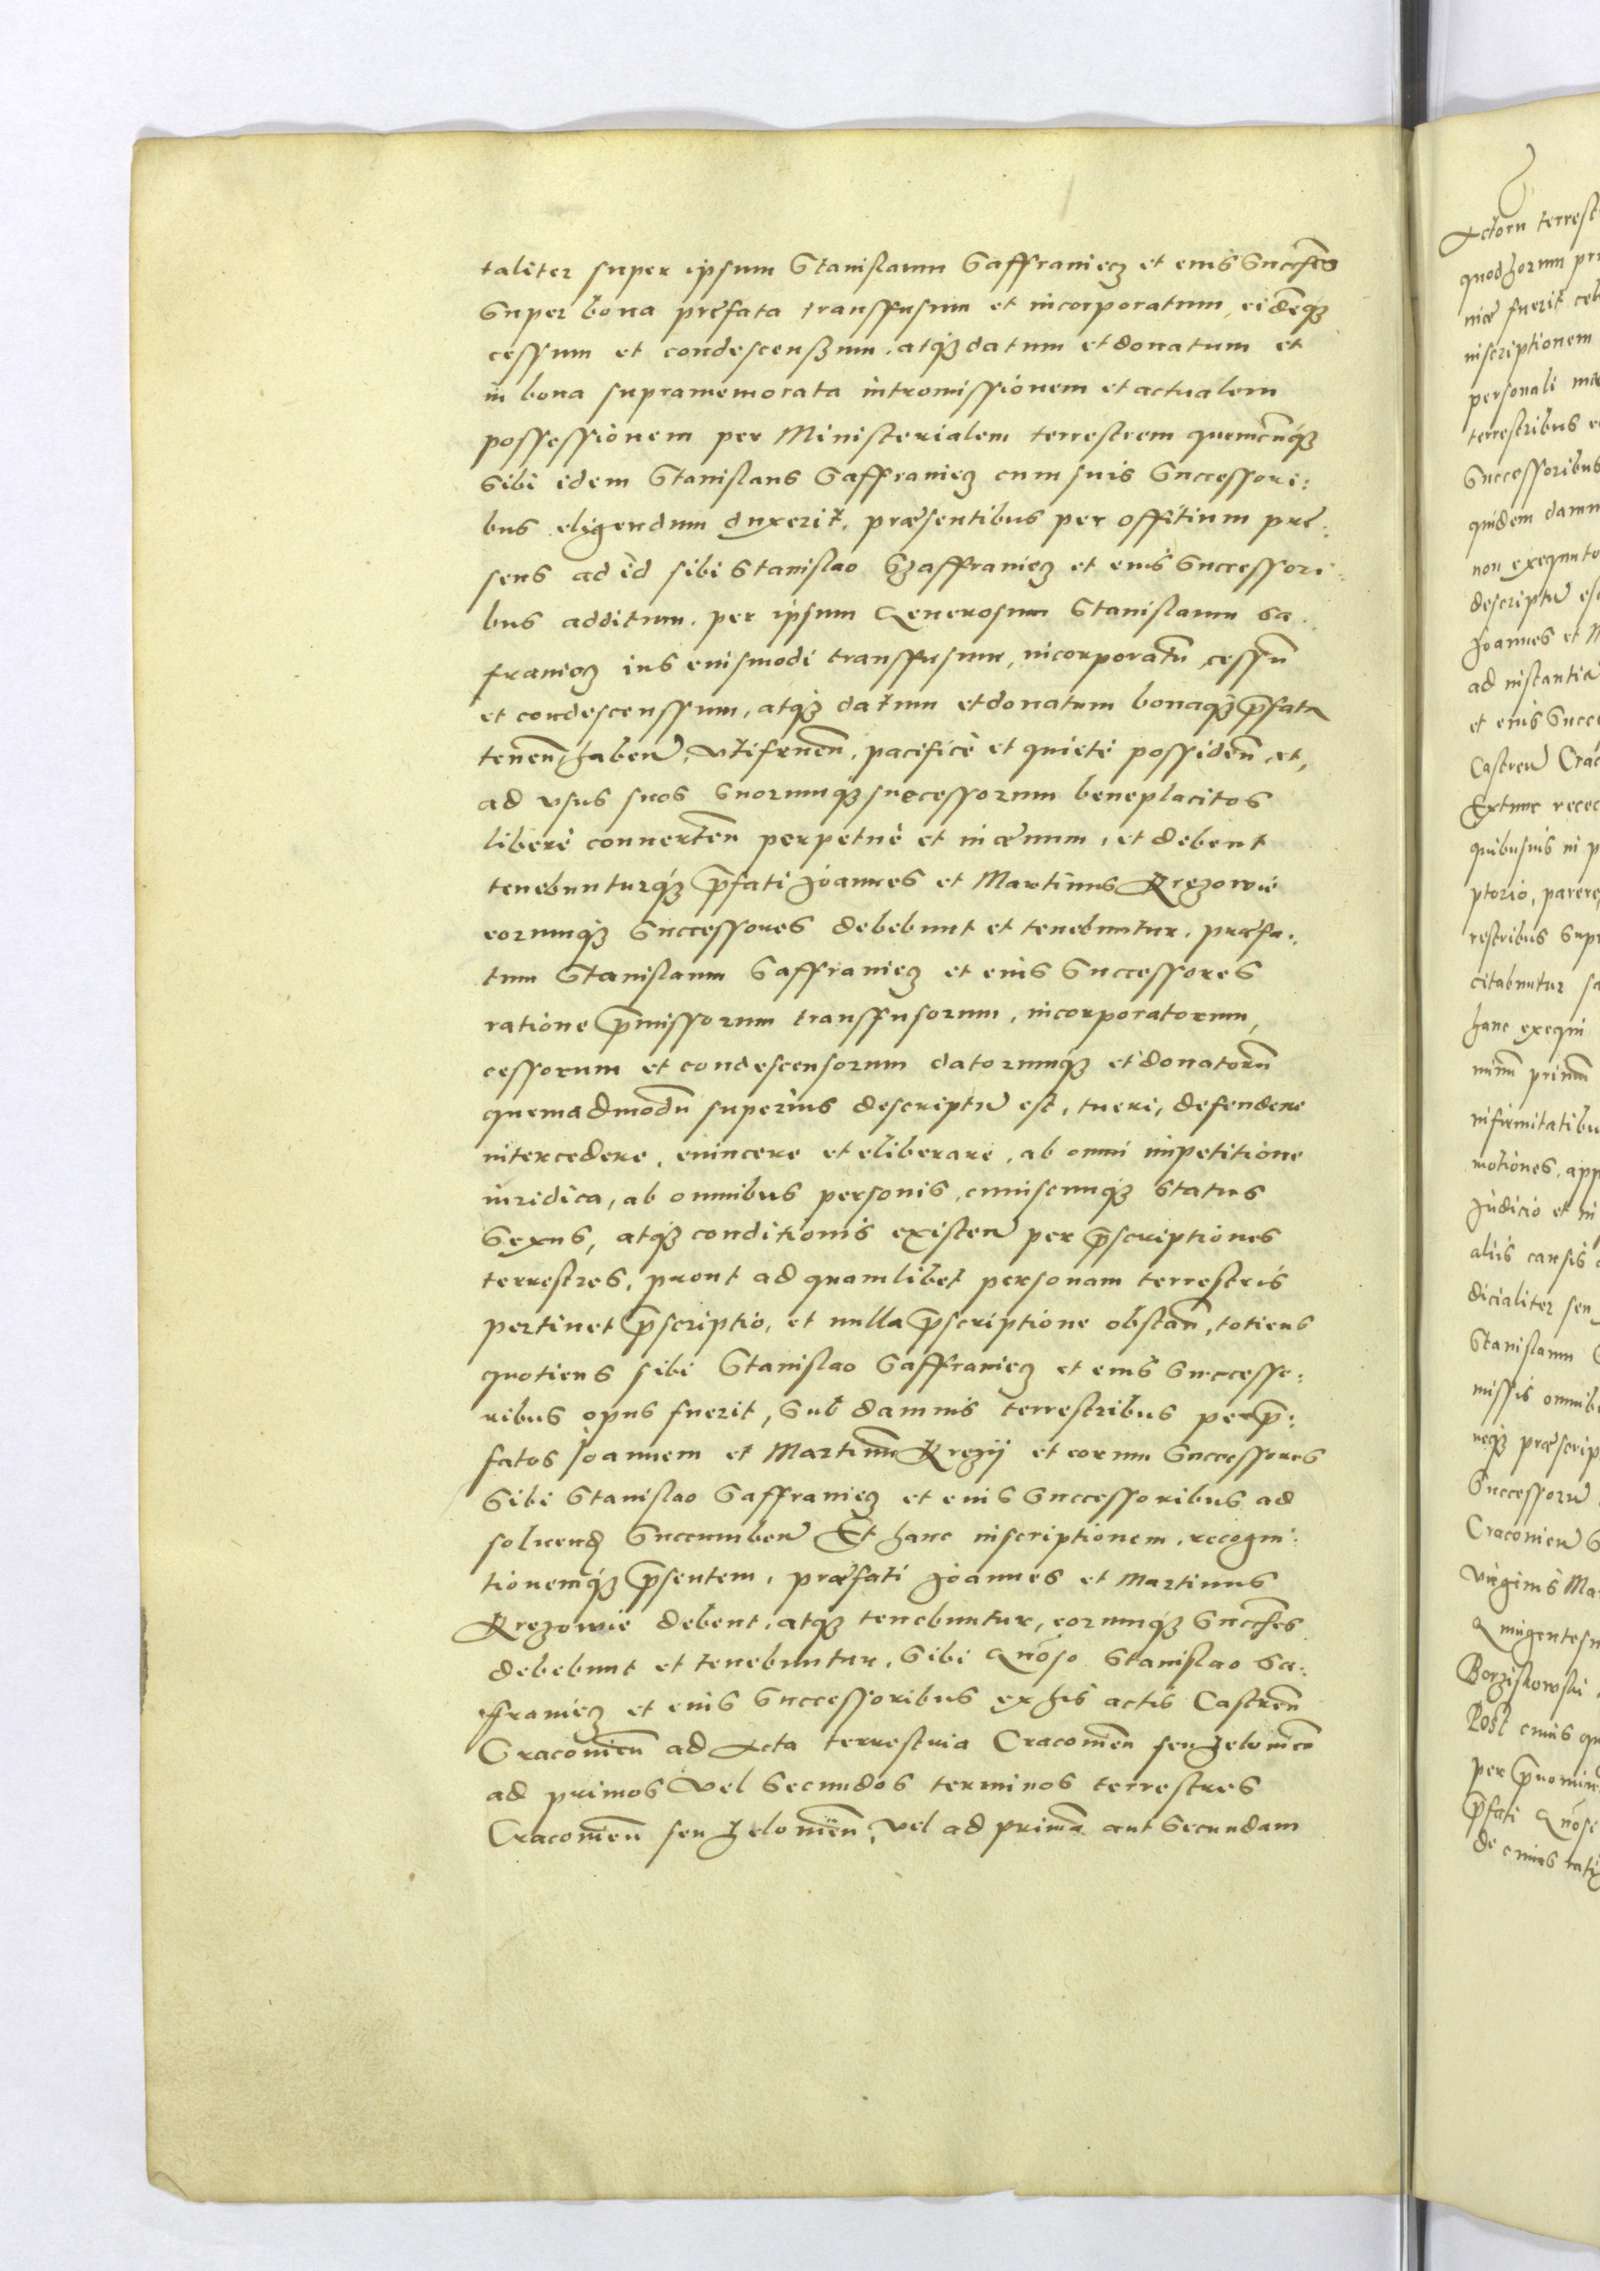 taliter super ipsum Stanislaum Saffraniecz et eius Succes̄s
Super bona prefata transffusum et incorporatum, eidēqȝ
cessum et condescenßum, atqȝ datum et donatum et
in bona supramemorata intromissionem et actualem
possessionem per Ministerialem terrestrem quemcūqȝ
Sibi idem Stanislaus Saffraniecz cum suis Successori:
bus eligendum duxerit, præsentibus per offitium præ:
sens ad id sibi Stanislao Szaffraniecz et eius Successori:
bus additum, per ipsum Generosum Stanislaum Sa:
franiecz ius eiusmodi transffusum, incorporatū, cessū
et condescenssum, atqȝ datum et donatum bonaqȝ p̄fata
tenen̄, haben̄, vtifruen̄, pacificè et quietè possiden̄, et,
ad vsus suos Suorumqȝ successorum beneplacitos
liberè conuerten̄ perpetuè et in æuum, et debent
tenebunturqȝ p̄fati Joannes et Martinus Rręzowie
eorumqȝ Successores debebunt et tenebuntur, præfa:
tum Stanislaum Saffraniecz et eius Successores
ratione p̄missorum transffusorum, incorporatorum,
cessorum et condescensorum datorumqȝ et donatorū
quemadmodū superius descriptū est, tueri, defendere
intercedere, euincere et eliberare, ab omni impetitione
iuridica, ab omnibus personis, cuiuscunqȝ status
Sexus, atqȝ conditionis existen̄ per p̄scriptiones
terrestres, prout ad quamlibet personam terrestris
pertinet p̄scriptio, et nulla p̄scriptione obstan̄, totiens
quotiens sibi Stanislao Saffraniecz et eius Successo:
ribus opus fuerit, Sub damnis terrestribus per p̄:
fatos Joannem et Martinū Rręzij et eorum Successores
Sibi Stanislao Saffraniecz et eius Successoribus ad
soluend̄ Succumben̄ Et hanc inscriptionem, recogni:
tionemqȝ p̄sentem, præfati Joannes et Martinus
Rręzowie debent, atqȝ tenebuntur, eorumqȝ Succes̄s
debebunt et tenebuntur, Sibi Gn̄oso Stanislao Sa:
ffraniecz et eius Successoribus ex his actis Castren̄
Cracouien̄ ad Acta terrestria Cracouien̄ seu Xelouien̄
ad primos vel Secundos terminos terrestres
Cracouien̄ seu Xelouien̄, vel ad primā aut Secundam
Actorū terrest
quod horum pri
niæ fuerit cel
inscriptionem
personali
terrestribus
Successoribus
quidem damn
non exequuto
descriptū es
Joannes et M
ad instantiā
et eius Succe
Castren̄ Crac
Extunc rece
quibusuis in p
ptorio, parere
restribus Sup
citabuntur sa
hanc exequi
nunū primū
infirmitatibu
motiones, app
Judicio et in
aliis causis
dicialiter seu
Stanislaum
missis omnib
neqȝ præscrip
Successorū
Cracouien̄ S
Virginis Ma
Quingentesi
Borziskowski
Post cuius qu
per p̄nomin
p̄fati Gn̄osi
de cuius rati